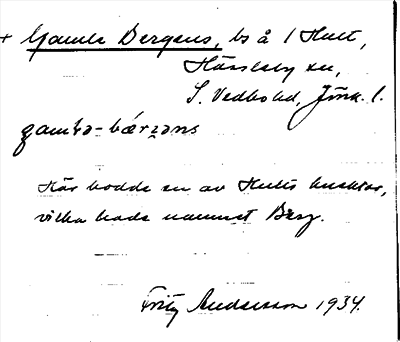 + Gamla Bergens, bs å 1 Hult,
Hässleby sn,
S. Vedbo hd, Jönk. l.
gamla-bærjəns
Här bodde en av Hults husktar,
vilka hade namnet Berg.
Fritz Andersson 1934.